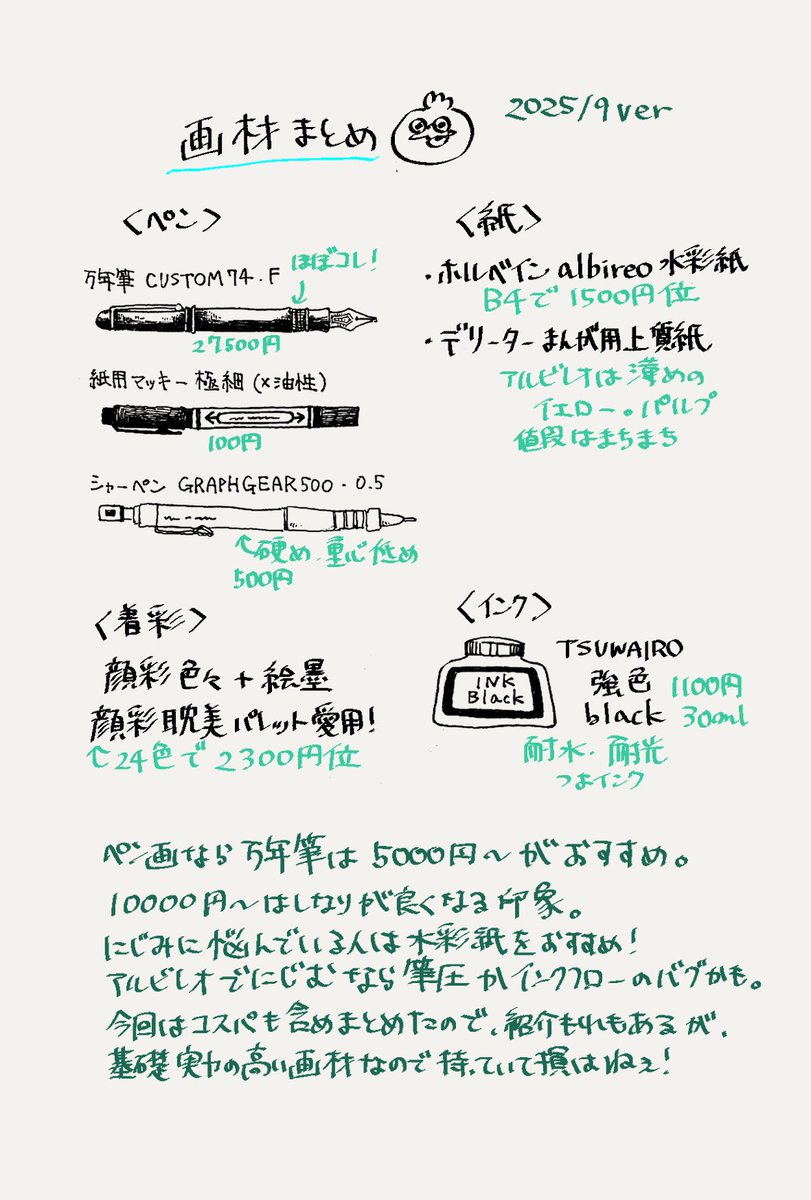 画材まとめ
2025/9ver
〈ペン〉
万年筆 CUSTOM74.F
ほぼコレ!
↓
27500円
紙用マッキー 極細 (×油性)
100円
シャーペン GRAPHGEAR500.0.5
↑硬め.重心低め
500円
〈紙〉
・ホルベイン albireo 水彩紙
B4で1500円位
・デリーター まんが用上質紙
アルビレオは薄めの
イエロー。パルプ
値段はまちまち
〈着彩〉
顔彩色々+絵墨
顔彩耽美パレット愛用!
↑24色で2300円位
〈インク〉
INK
Black
TSUWAIRO
強色
black
1100円
30ml
耐水.耐光
つよインク
ペン画なら万年筆は5000円〜がおすすめ。
10000円〜はしなりが良くなる印象。
にじみに悩んでいる人は水彩紙をおすすめ!
アルビレオでにじむなら筆圧かインクフローのバグかも。
今回はコスパも含めまとめたので、紹介もれもあるが、
基礎実力の高い画材なので持っていて損はねぇ!